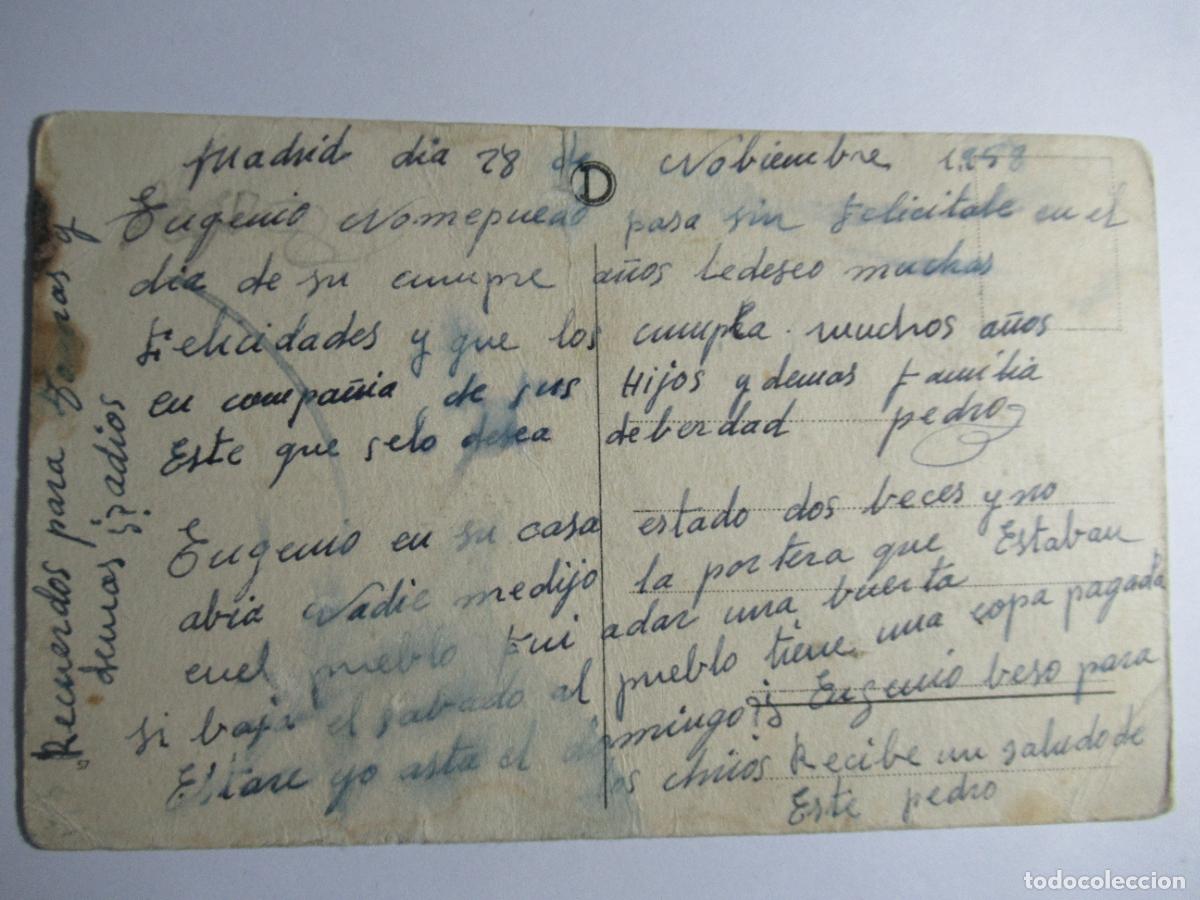 Madrid dia 28 de Nobiembre 1958
D
Eugenio Nomepuedo pasa sin Felicitale en el
dia de su cumpre años ledeseo muchas
Felicidades y que los cumpla muchos años
en compañia de sus Hijos y demas Familia
Este que selo desea deberdad pedro
Eugenio en su casa estado dos beces y no
abia Nadie medijo la portera que Estaban
enel pueblo Fui adar una buerta
si baja el sabado al pueblo tiene una copa pagada
Estare yo asta el domingo?¡ Eugenio beso para
los chicos Recibe un saludo de
Este pedro
Recuerdos para y
demas ¡? adios
todocoleccion